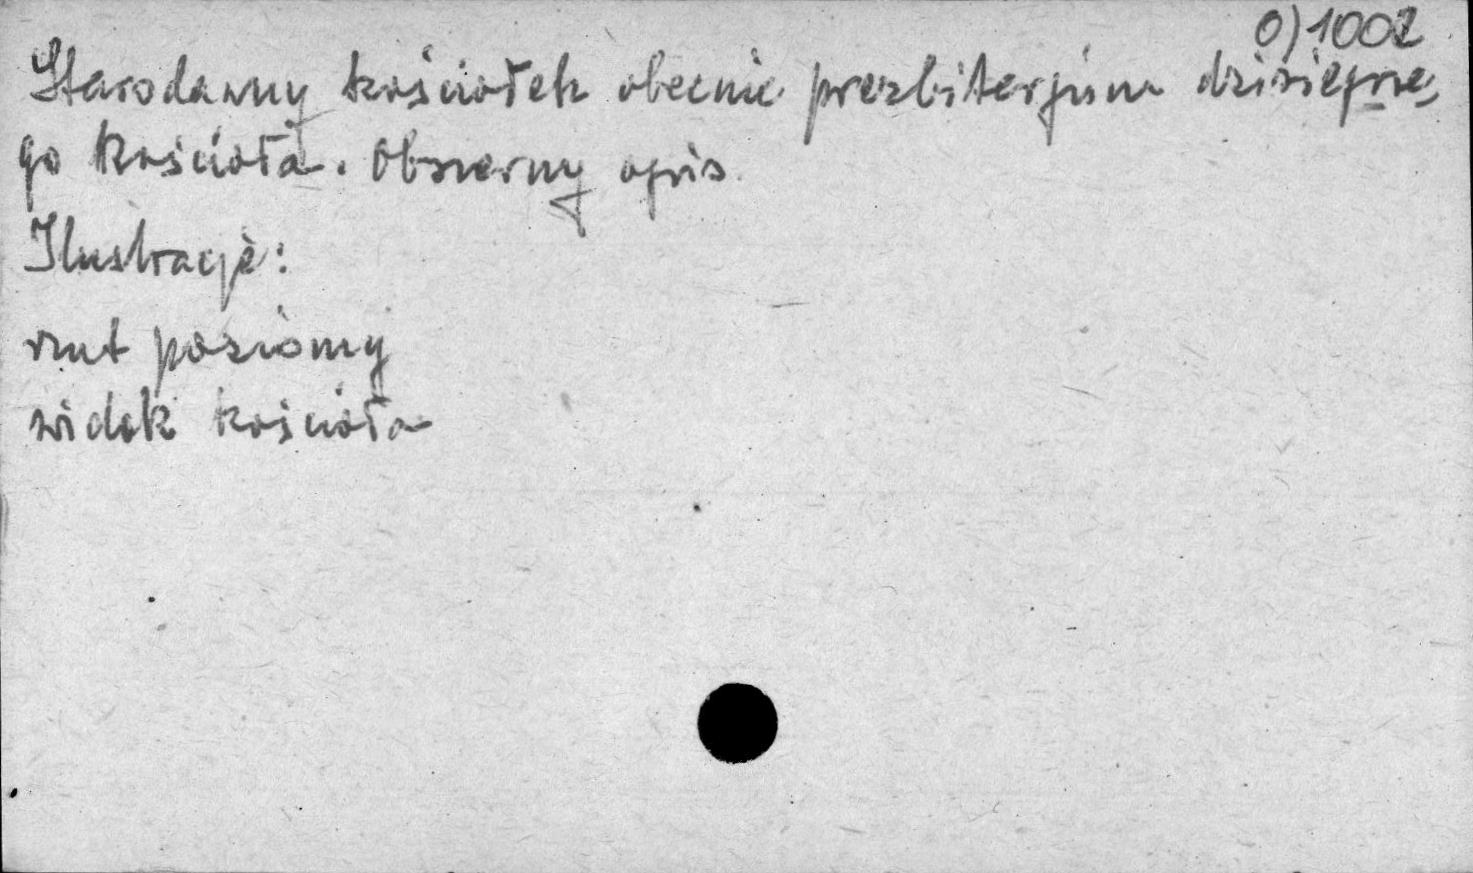 0) 1002
Starodawny kościołek obecnie prezbiterjum dzisiejsze,
go kościoła. Obszerny opis.
Ilustracje:
rzut poziomy
widok kościoła